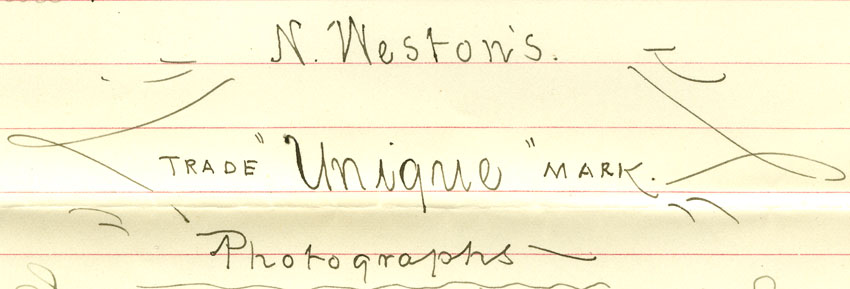 N. Weston's.
TRADE "Unique" MARK.
Photographs